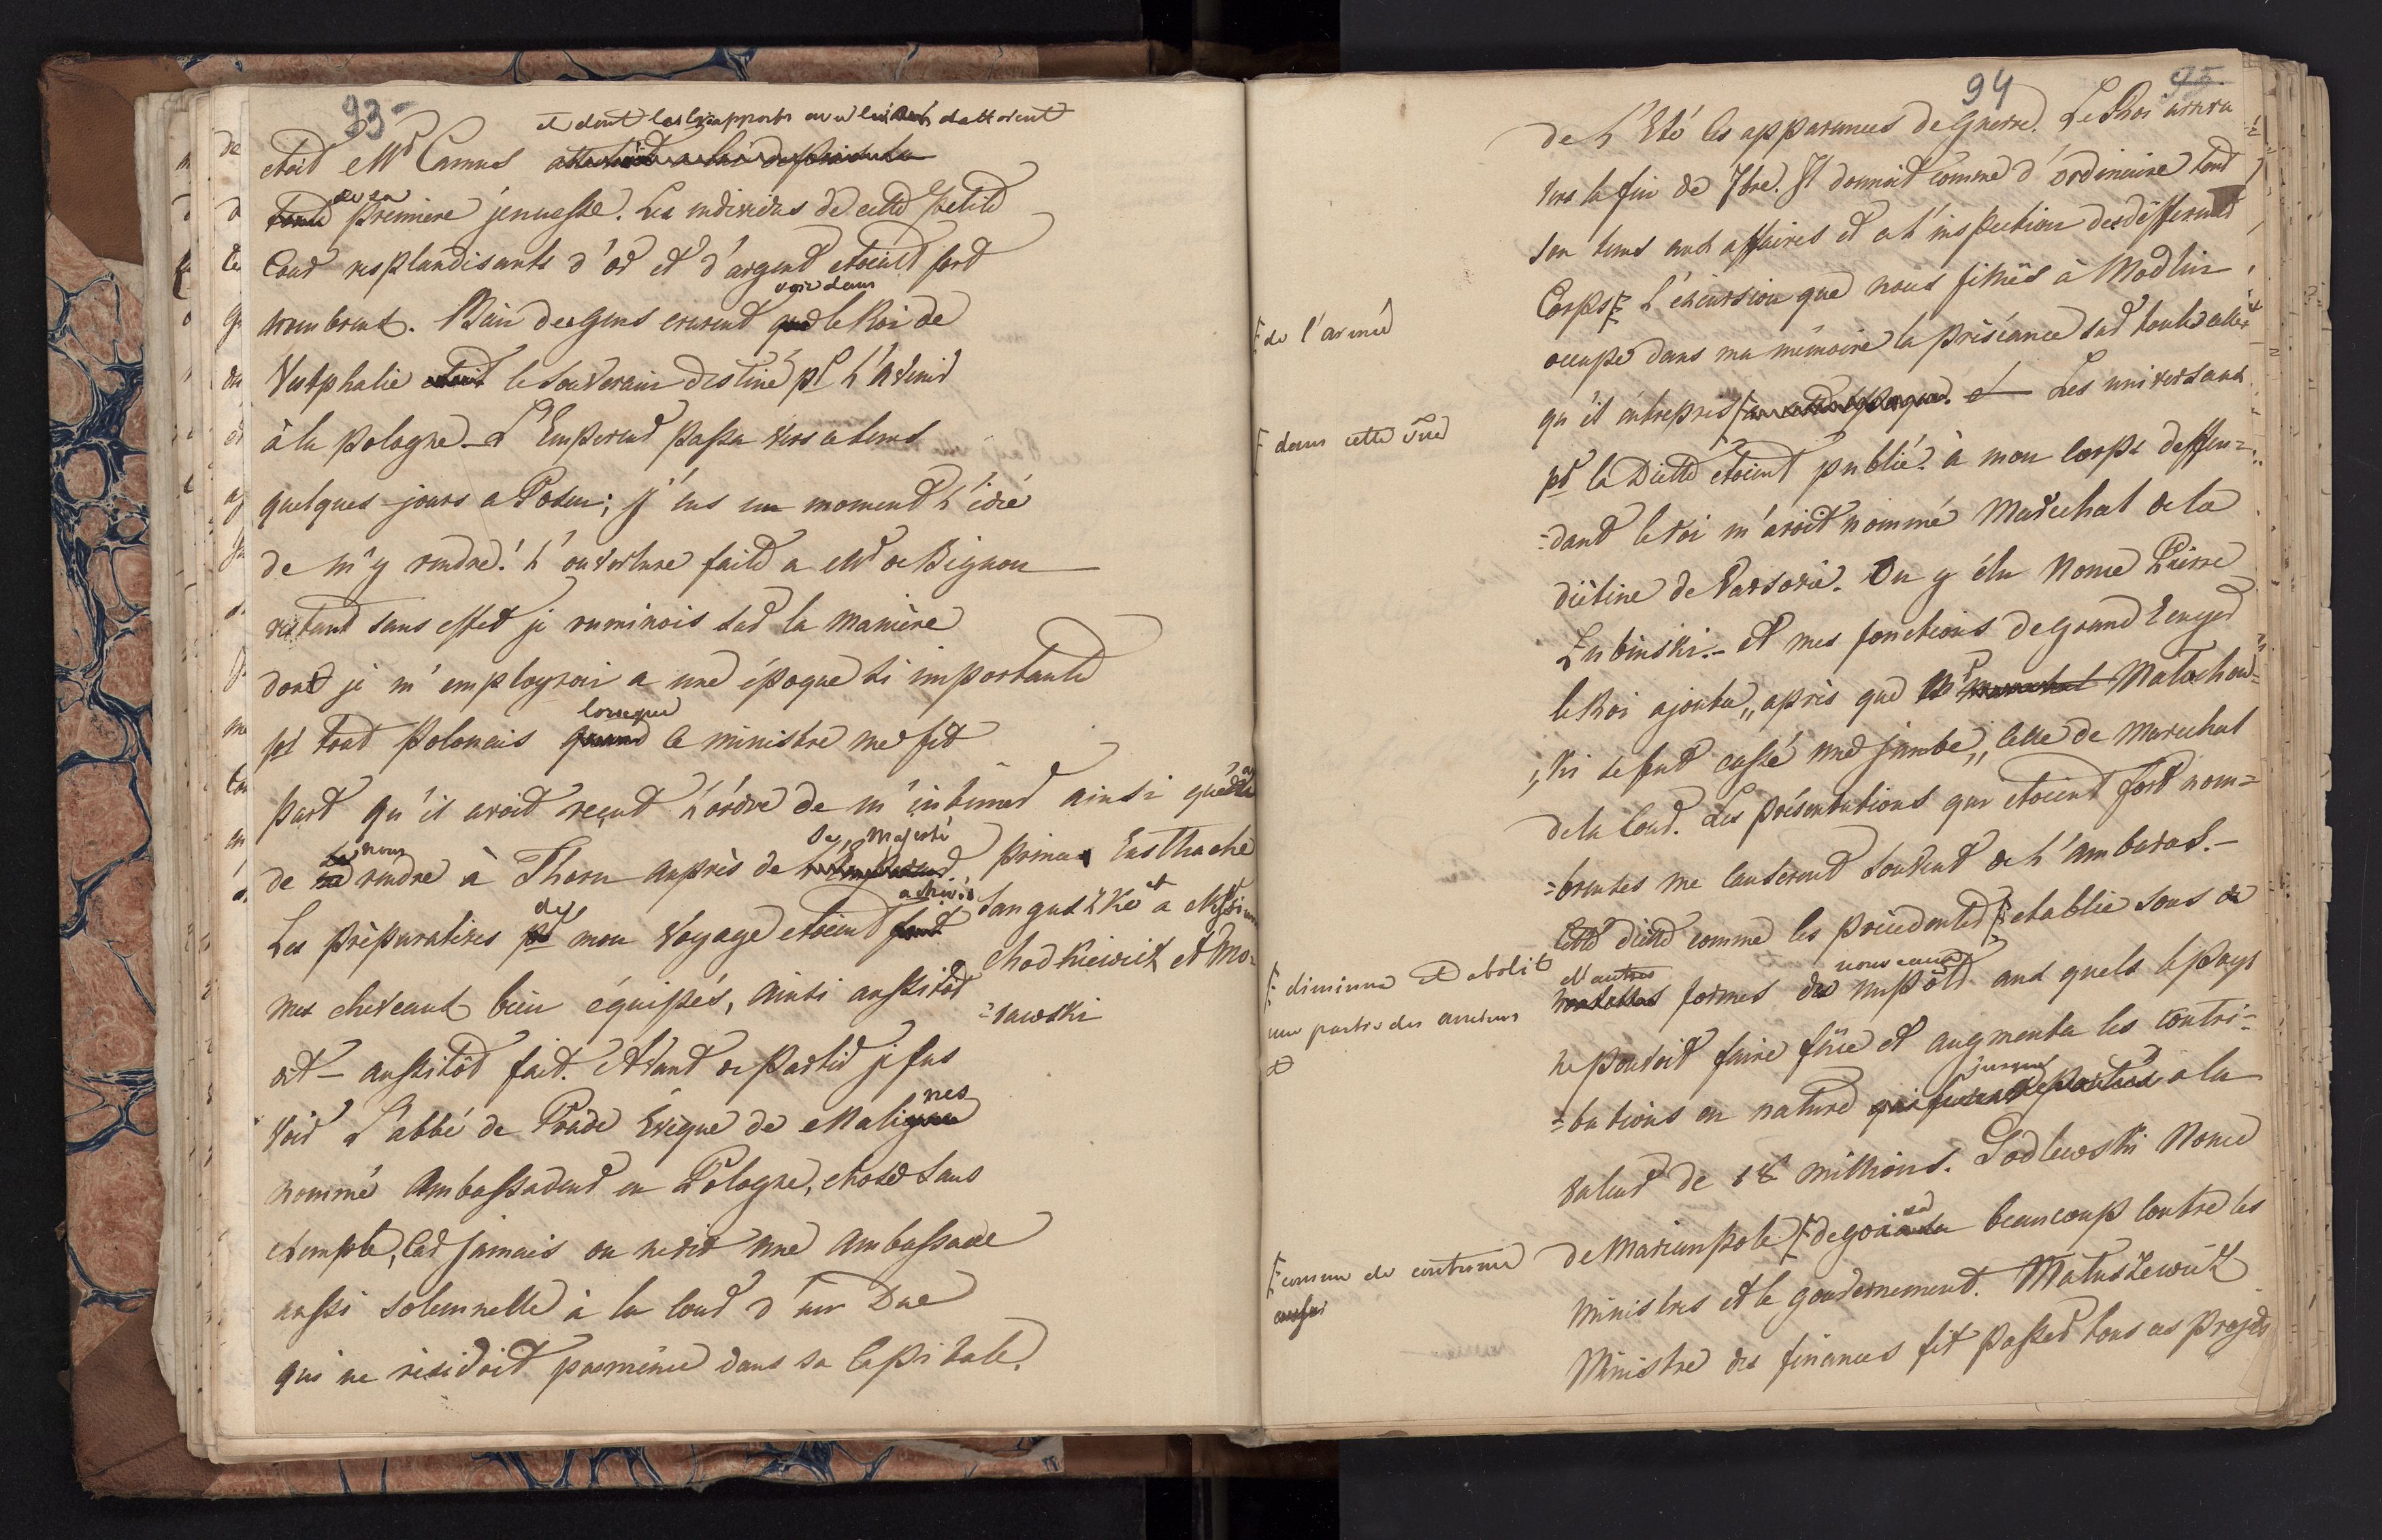 93
et dont les rapports avec lui dattoient
etoit Mr Camus
de sa
toute premiere jeunesse. Les individus de cette petite
Cour resplandisants d'or et d'argent etoient fort
voir dans
nombreux. Bien des gens crurent que le Roi de
Vestphalie etoit le souverain destiné pr l'avenir
à la pologne. L'Empereur passa vers ce tems
quelques jours a Posen; j'eus un moment l'idée
de m'y rendre! l'ouverture faite a Mr de Bignon
restant sans effet je ruminois sur la manière
dont je m'employrai a une époque si importante
lorsque
pr tout Polonais quand ce ministre me fit
part qu'il avoit reçut l'ordre de m'intimer ainsi qu'au
nous Sa Majesté
de me rendre à Thorn auprès de l'Empereur. prince Eusthache
de achevés
Les préparatives pr mon voyage etoient fort Sanguszko et a Mssieurs
Chodkiewicz et Mo=
mes cheveaux bien équipés, ainsi aussitôt =rawski
dit – aussitôt fait. Avant de partir je fus
nes
voir L'abbé de Prade Evêque de Maligne
nommé Ambassadeur en Pologne, chose sans
exemple, car jamais on ne vit une Ambassade
aussi solemnelle à la cour d'un Duc
qui ne residoit pas même dans sa Capitale.
94
95
de L'Eté les apparences de Guerre. Le Roi arriva
vers la fin de 7bre. Il donnoit comme d'ordinaire tout
son tems aux affaires et a l'inspection des différents
Corps L'excursion que nous fimes à Modlin
de l'armée
occupe dans ma mémoire la préséance sur toutes celles
qu'il entreprit Les universaux
dans cette vue
pr la Diette étoient publié. à mon corps deffen=
=dant le roi m'avoit nommé Maréchal de la
diétine de Varsovie. On y élu Nonce Pierre
Lubinski. – Et mes fonctions de grand Ecuyer
le Roi ajouta, après que Mr Marechal Malachow=
ski se fut cassé une jambe, celle de Marechal
de la Cour. Les présentations qui etoient fort nom=
=breuses me causerent souvent de l'ambaras. –
Cette diette comme les précédentes etablie sous de
diminua et abolit
une partie des anciens
et
d'autres nouveaux
nouvelles formes des impôts aux quels le pays
ne pouvoit faire face et augmenta les contri=
jusque
=butions en nature qui furent portées a la
valeur de 18 millions. Godlewski Nonce
de Mariampole degoisa beaucoup contre les
comme de coutume
ministres et le gouvernement. Matuszewicz
Ministre des finances fit passer tous ces projets